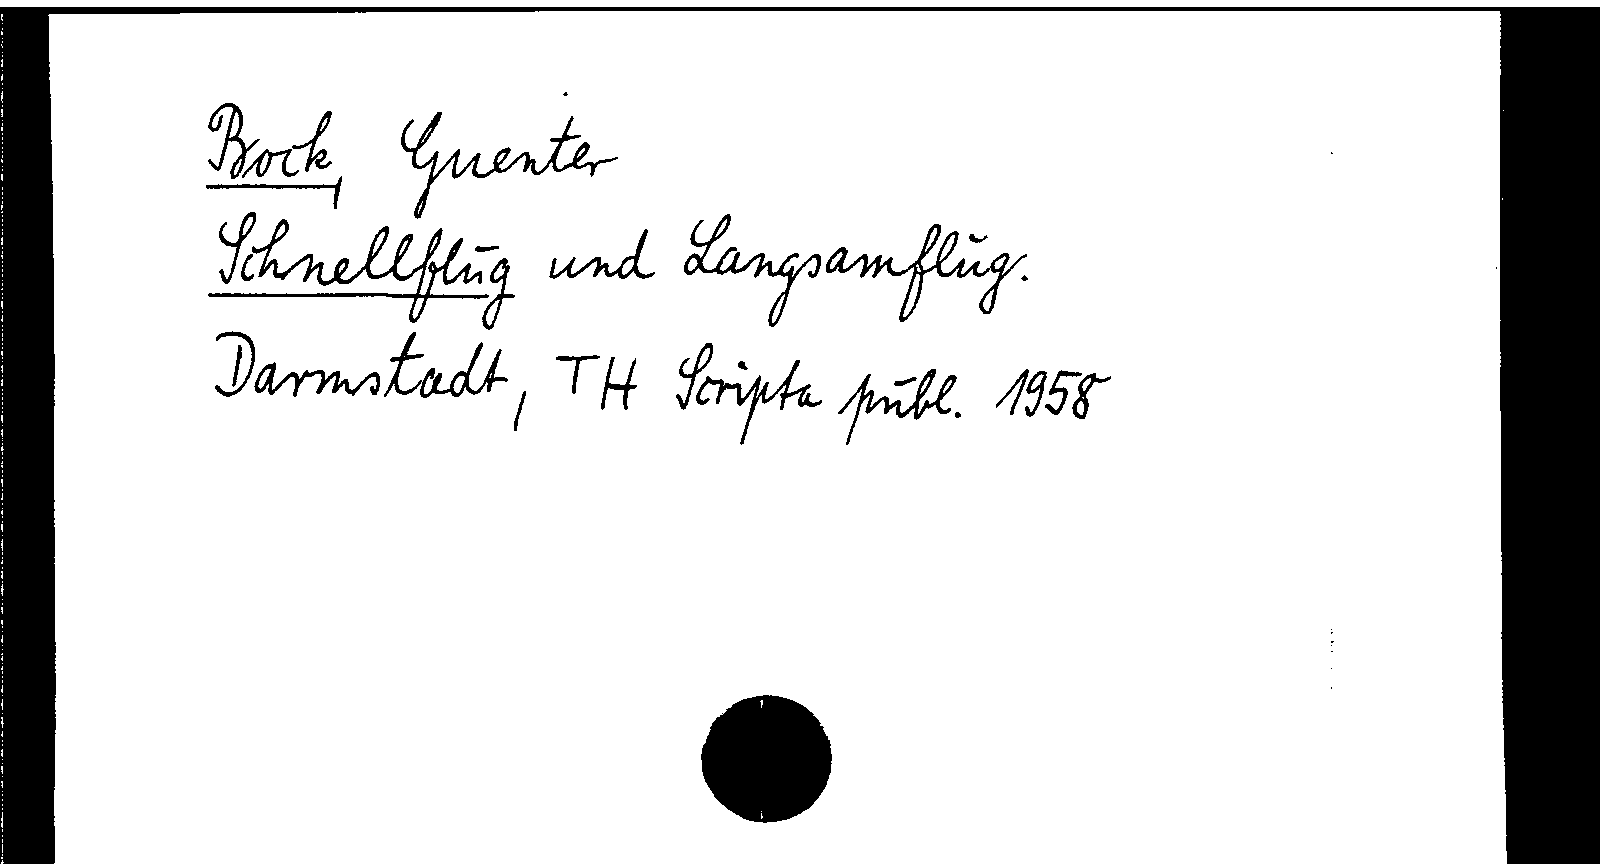 Bock, Guenter
Schnellflug und Langsamflug.
Darmstadt, TH Scripta publ. 1958